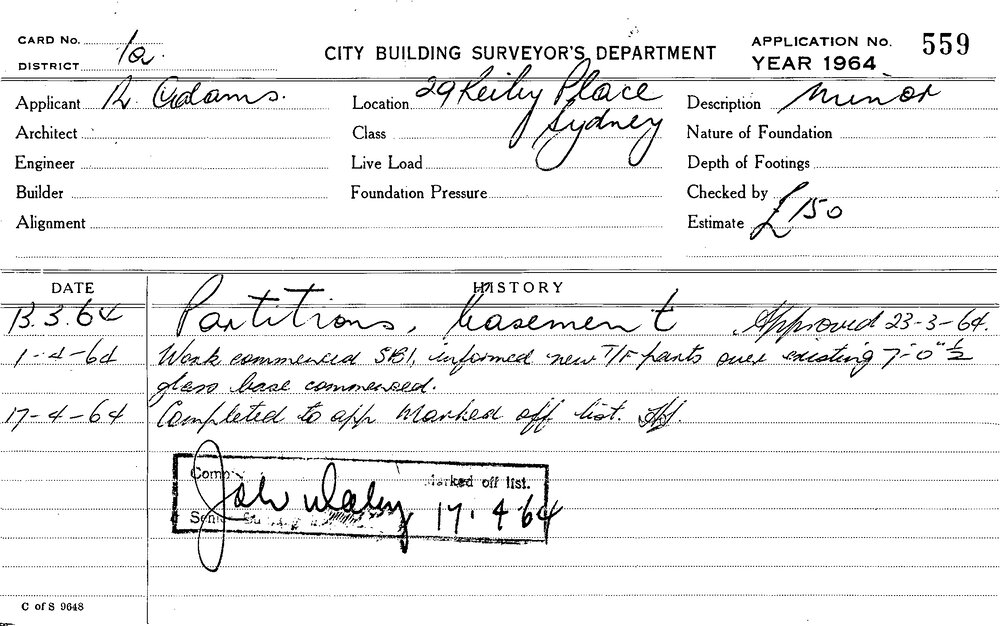 CARD No.
DISTRICT 1a
CITY BUILDING SURVEYOR'S DEPARTMENT
APPLICATION No. 559
YEAR 1964
Applicant R. Adams.
Location 29 Reiby Place
Sydney
Description Minor
Architect
Class
Nature of Foundation
Engineer
Live Load
Depth of Footings
Builder
Foundation Pressure
Checked by
Alignment
Estimate £150
DATE
HISTORY
13.3.64 Partitions, basement Approved 23-3-64.
1-4-64 Work commenced informed new T/F parts over existing 7'-0" ½
glass base commenced.
17-4-64 Completed to app Marked off list.
Marked off list.
17. 4 64
C of S 9648